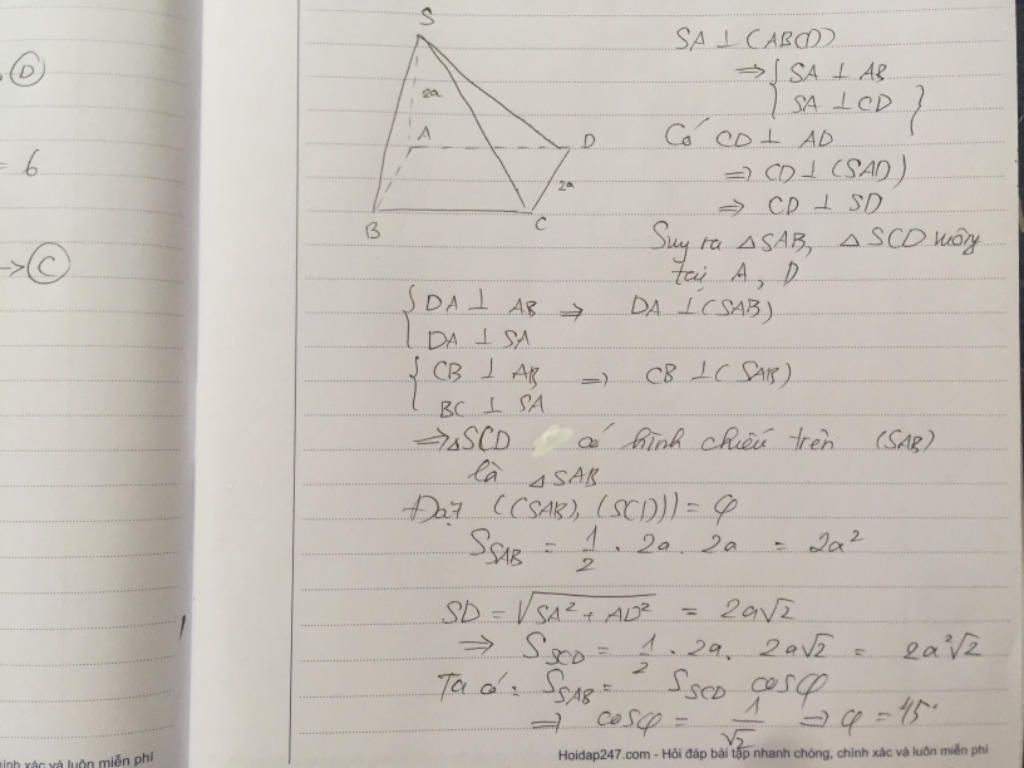 D
= 6
→ C
S
2a
A
D
2a
B
C
SA ⊥ (ABCD)
⇒ { SA ⊥ AB
{ SA ⊥ CD }
Có CD ⊥ AD
⇒ CD ⊥ (SAD)
⇒ CD ⊥ SD
Suy ra △SAB, △SCD vuông
tại A, D
{ DA ⊥ AB ⇒ DA ⊥ (SAB)
{ DA ⊥ SA
{ CB ⊥ AB ⇒ CB ⊥ (SAB)
{ BC ⊥ SA
⇒ △SCD có hình chiếu trên (SAB)
là △SAB
Đặt ((SAB), (SCD)) = φ
S_SAB = 1/2 . 2a . 2a = 2a²
SD = √(SA² + AD²) = 2a√2
⇒ S_SCD = 1/2 . 2a . 2a√2 = 2a²√2
Ta có: S_SAB = S_SCD cosφ
⇒ cosφ = 1/√2 ⇒ φ = 45°
hính xác và luôn miễn phí
Hoidap247.com - Hỏi đáp bài tập nhanh chóng, chính xác và luôn miễn phí